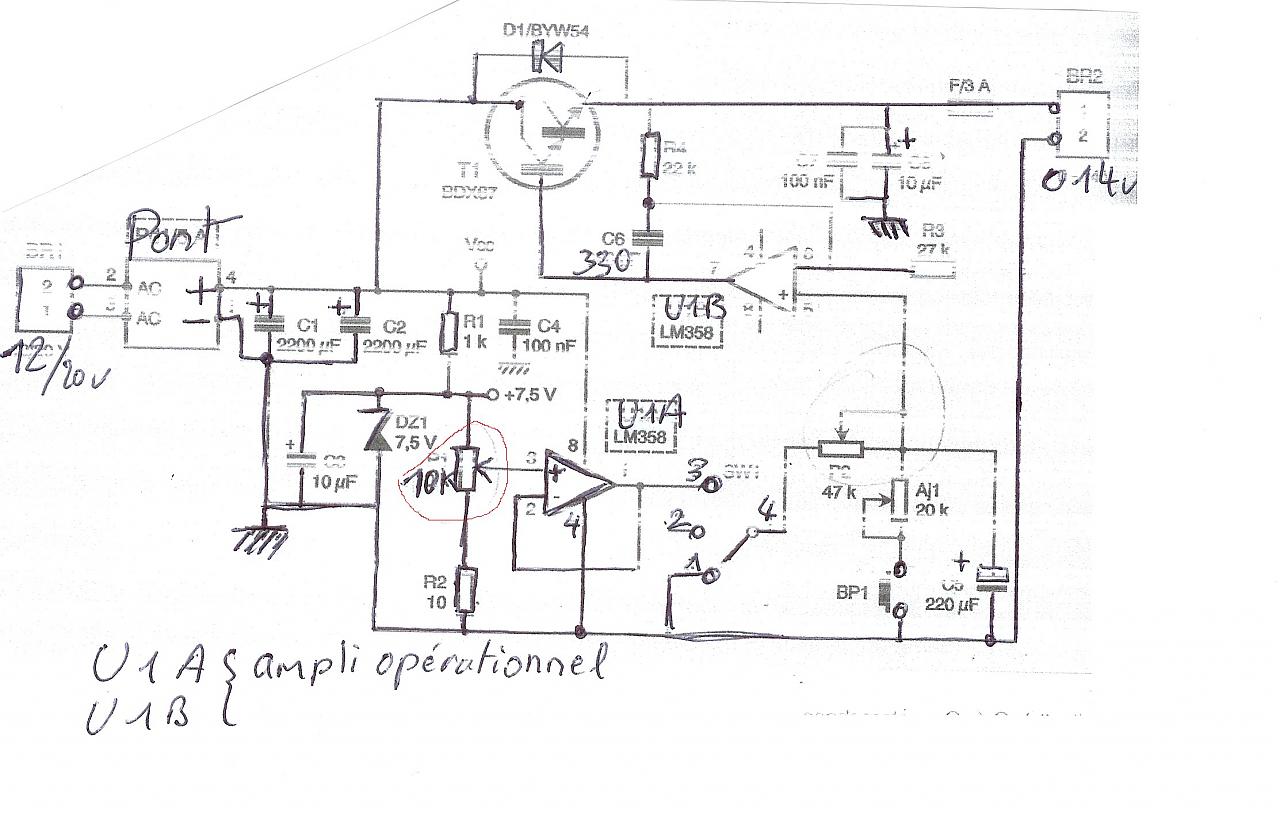 D1/BYW54
F/3 A
BR2
1
2
014v
R4
22 k
100 nF
+
10 µF
T1
BDX67
C6
330
7
4
R3
27 k
U1B
LM358
Pont
Vcc
BR1
2
1
2
AC
AC
4
+
-
12/20v
+
C1
2200 µF
+
C2
2200 µF
R1
1 k
C4
100 nF
+7,5 V
DZ1
7,5 V
+
C3
10 µF
10K
3
2
+
-
8
4
1
U1A
LM358
3
SW1
2
1
4
P2
47 k
Aj1
20 k
BP1
+
C5
220 µF
R2
10
U1A { ampli opérationnel
U1B {